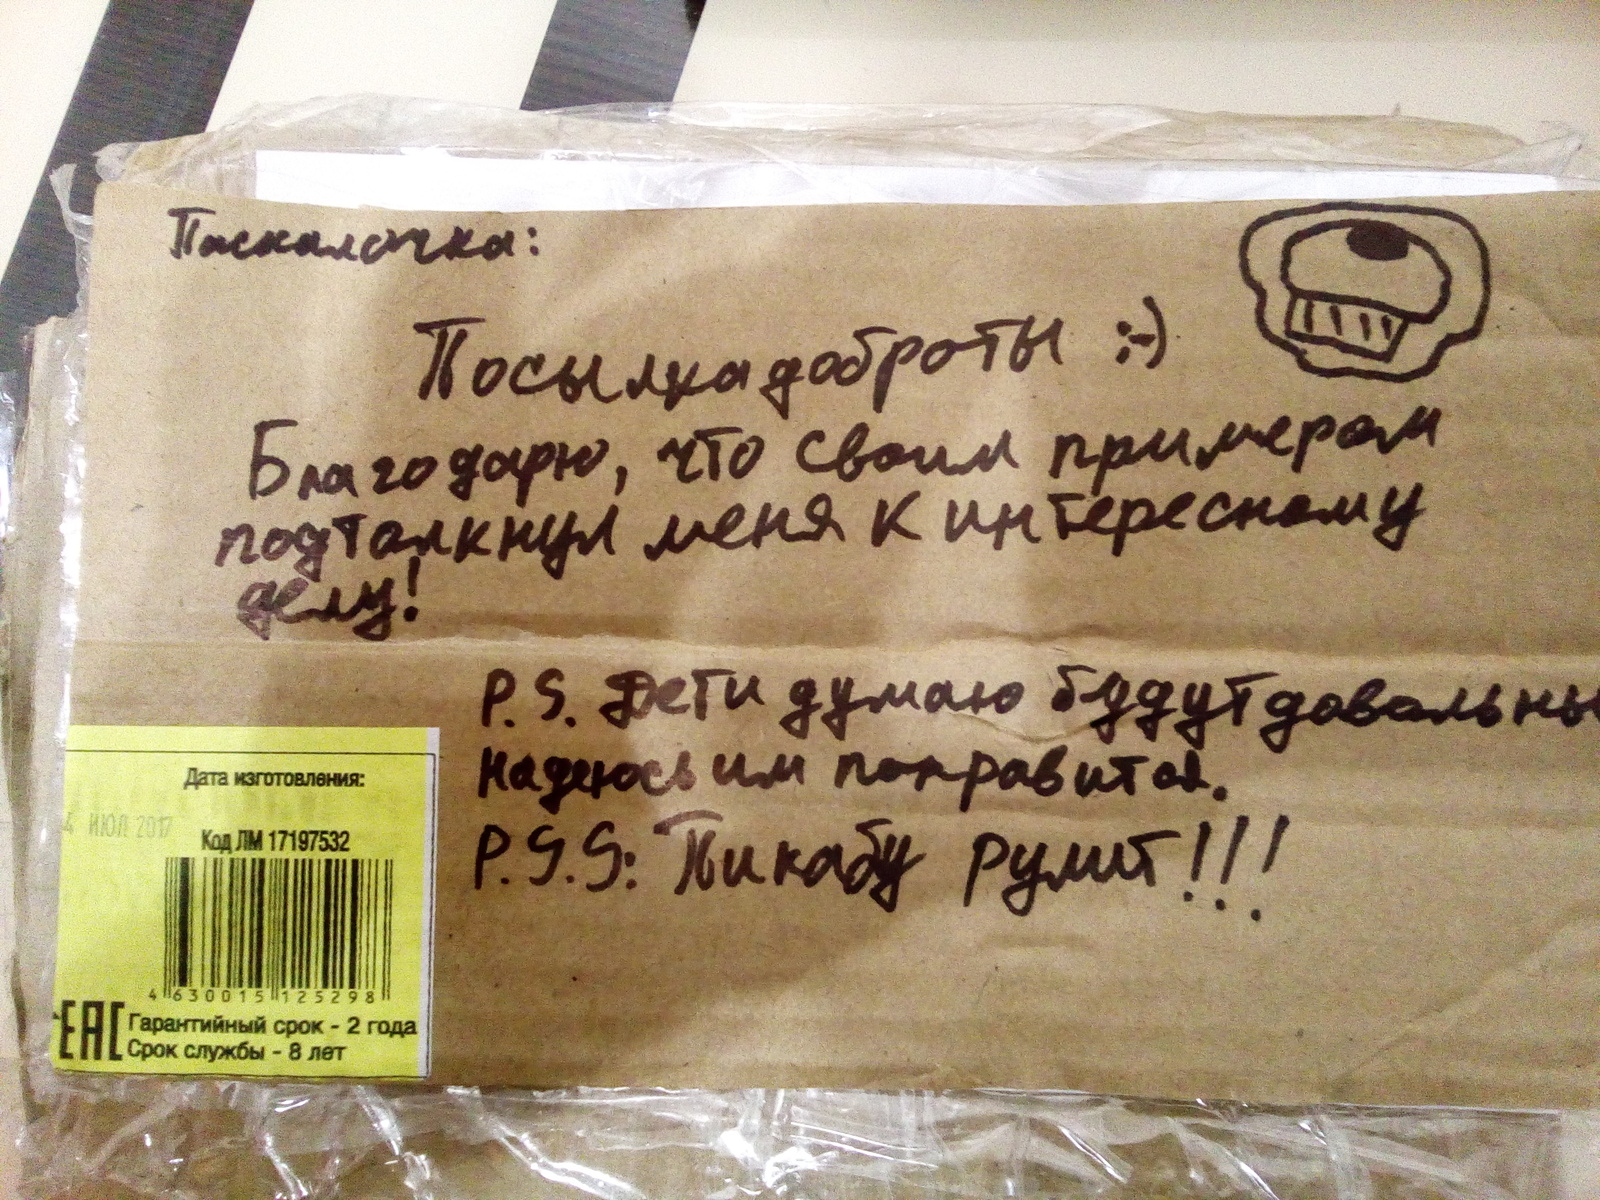 Паскалочка:
Посылка доброты :-)
Благодарю, что своим примером
подталкнул меня к интересному
делу!
P.S. Дети думаю будут довальны
надеюсь им понравится.
P.S.S: Пикабу румит!!!
Дата изготовления:
4 ИЮЛ 2017
Код ЛМ 17197532
4 630015 125298
EAC
Гарантийный срок - 2 года
Срок службы - 8 лет